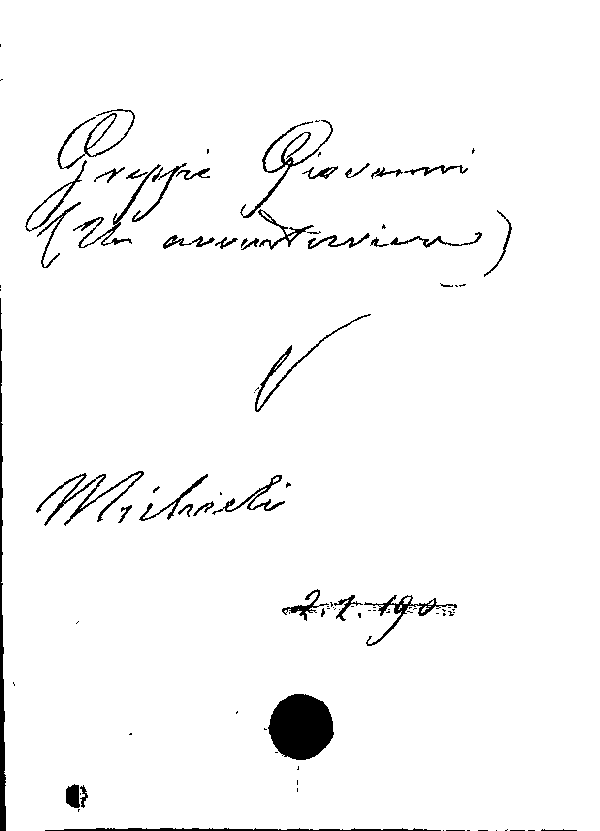 Greppi Giovanni
(Un avventuriero)
V
2.1.190